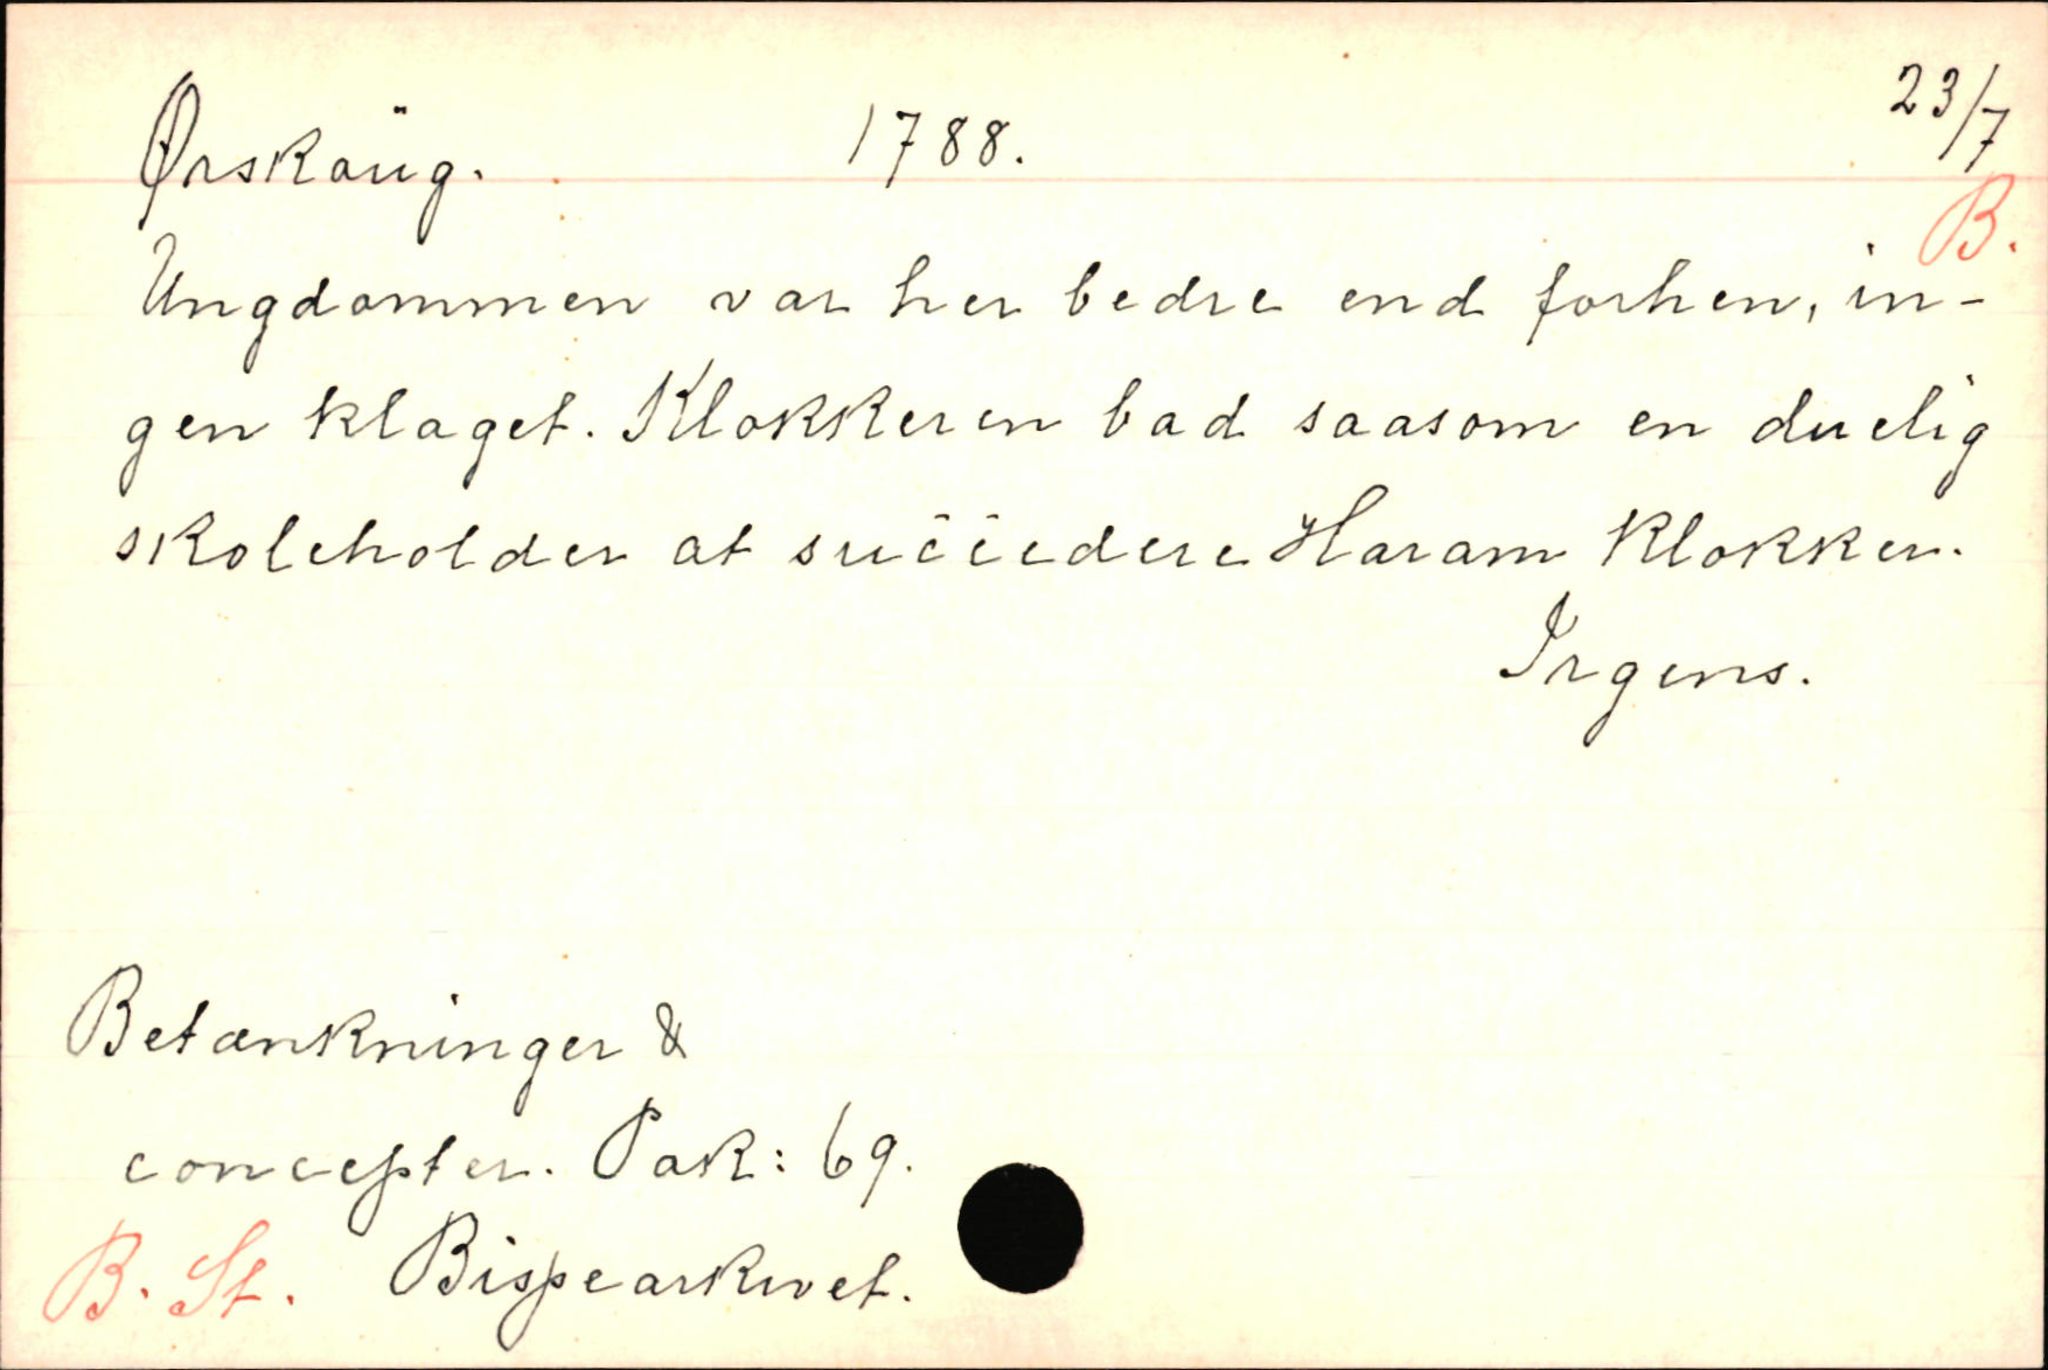 Ørskaüg. 1788. 23/7
B.
Ungdommen var her bedre end forhen, in-
gen klaget. Klokkeren bad saasom en duelig
skoleholder at succedere Haram Klokker.
Irgens.
Betænkninger &
concepter. Pak: 69.
B. St. Bispearkivet.